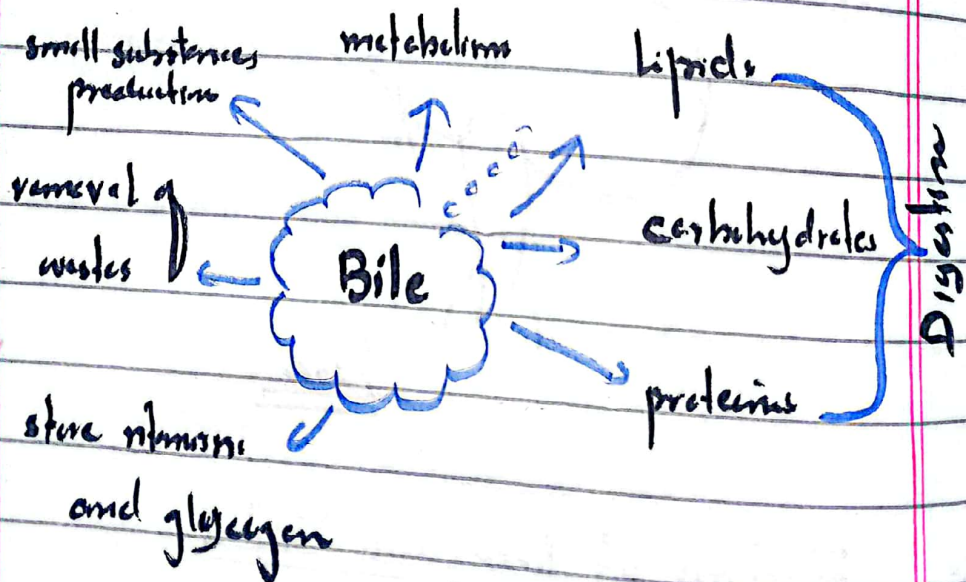 small substances
production
metabolism
Lipids
removal of
wastes
Bile
carbohydrates
Digestion
proteins
store vitamins
and glycogen